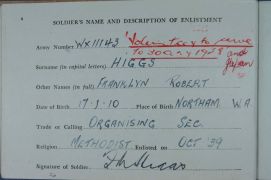 4
SOLDIER'S NAME AND DESCRIPTION OF ENLISTMENT
Army Number WX11143 Voluntary to serve
to Jan 1948 and Japan
Surname (in capital letters) HIGGS
Other Names (in full) FRANKLYN ROBERT
Date of Birth 17-1-10 Place of Birth NORTHAM W.A.
Trade or Calling ORGANISING SEC.
Religion METHODIST Enlisted on OCT '39
Signature of Soldier